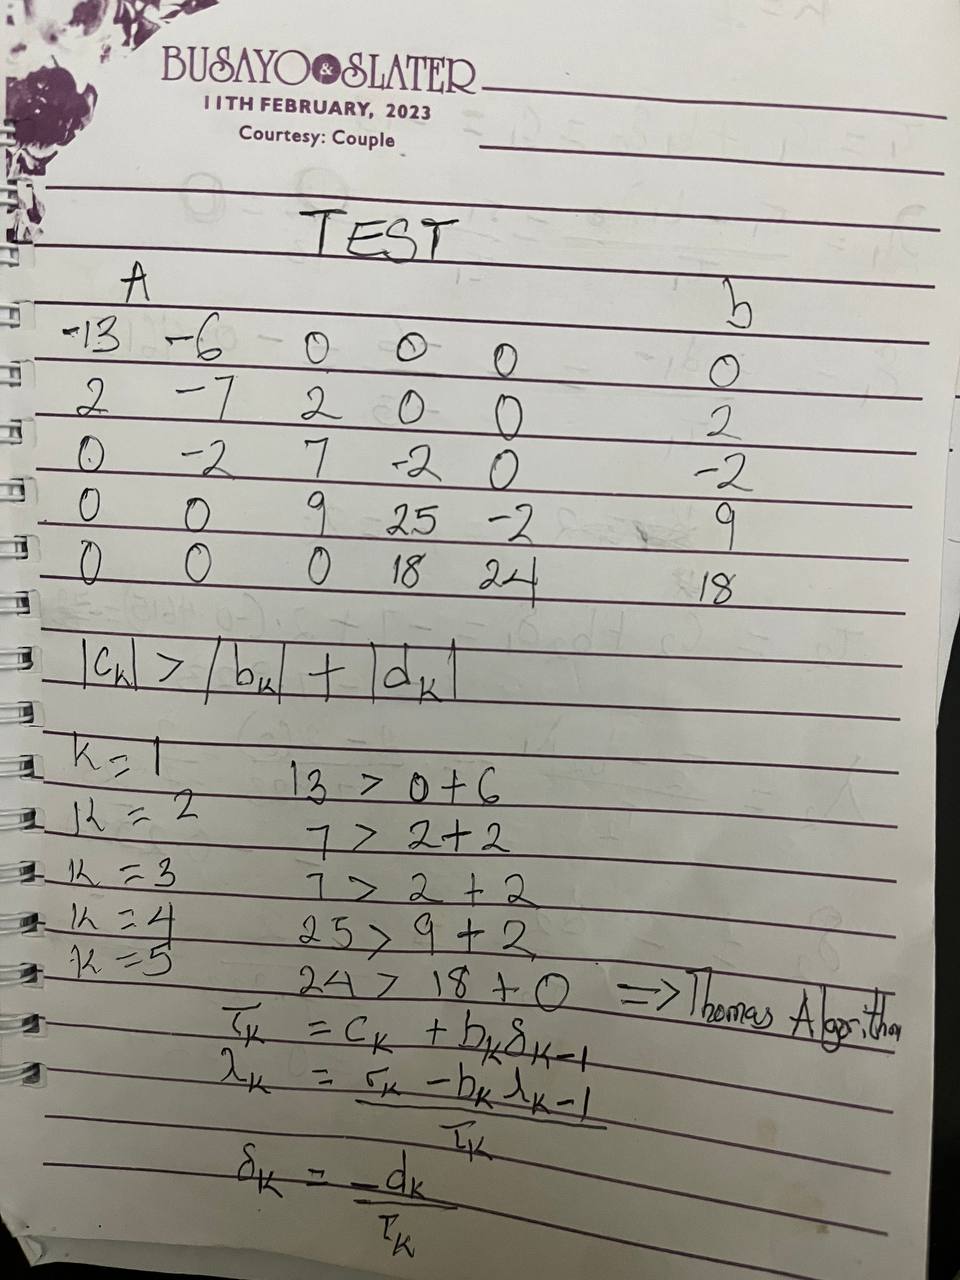 BUSAYO & SLATER
11TH FEBRUARY, 2023
Courtesy: Couple
TEST
A b
-13 -6 0 0 0 0
2 -7 2 0 0 2
0 -2 7 -2 0 -2
0 0 9 25 -2 9
0 0 0 18 24 18
|cₖ| > |bₖ| + |dₖ|
k = 1 13 > 0 + 6
k = 2 7 > 2 + 2
k = 3 7 > 2 + 2
k = 4 25 > 9 + 2
k = 5 24 > 18 + 0 => Thomas Algorithm
τₖ = cₖ + bₖ δₖ₋₁
λₖ = rₖ - bₖ λₖ₋₁
τₖ
δₖ = -dₖ
τₖ